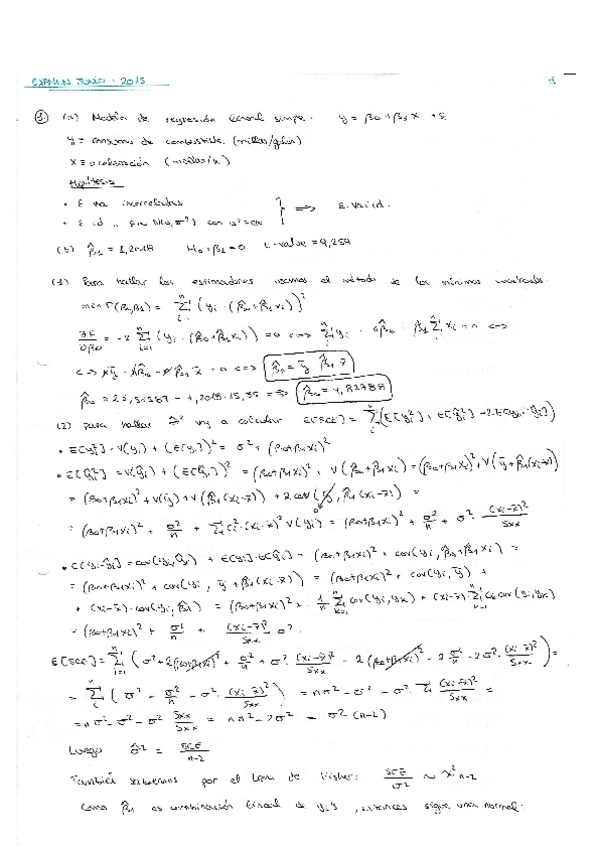 EXAMEN JUNIO : 2015
1
1. (a) Modelo de regresión lineal simple. y = β0 + β1 x + ε
y = consumo de combustible (millas/galón)
x = aceleración (millas/s)
Hipótesis
• ε va incorreladas
• ε id N(0, σ²) con σ² = cte } ⇒ ε va iid.
(b) β̂1 = 1,2018 H0 = β1 = 0 t-value = 9,259
(1) Para hallar los estimadores usamos el método de los mínimos cuadrados.
min F(β0, β1) = Σ (yi - (β̂0 + β̂1 xi))²
∂F/∂β0 = -2 Σ (yi - (β̂0 + β̂1 xi)) = 0 ⟺ Σ yi - nβ̂0 - β̂1 Σ xi = 0 ⟺
⟺ nȳ - nβ̂0 - nβ̂1 x̄ = 0 ⟺ β̂0 = ȳ - β̂1 x̄
β̂0 = - 1,2018 · 15, ⇒ β̂0 = 4,82788
(2) Para hallar σ̂² voy a calcular E[SCE] = Σ (E[yi²] + E[ŷi²] - 2·E[yi · ŷi])
• E[yi²] = V(yi) + (E[yi])² = σ² + (β0 + β1 xi)²
• E[ŷi²] = V(ŷi) + (E[ŷi])² = (β0 + β1 xi)² + V(β̂0 + β̂1 xi) = (β0 + β1 xi)² + V(ȳ + β̂1(xi - x̄))
= (β0 + β1 xi)² + V(ȳ) + V(β̂1(xi - x̄)) + 2 cov(ȳ, β̂1(xi - x̄)) =
= (β0 + β1 xi)² + σ²/n + Σ ci² · (xi - x̄)² V(yi) = (β0 + β1 xi)² + σ²/n + σ² · (xi - x̄)²/Sxx
• E[yi · ŷi] = cov(yi, ŷi) + E[yi] · E[ŷi] = (β0 + β1 xi)² + cov(yi, β̂0 + β̂1 xi) =
= (β0 + β1 xi)² + cov(yi, ȳ + β̂1(xi - x̄)) = (β0 + β1 xi)² + cov(yi, ȳ) +
+ (xi - x̄) · cov(yi, β̂1) = (β0 + β1 xi)² + 1/n Σ cov(yi, yk) + (xi - x̄) · Σ ck cov(yi, yk)
= (β0 + β1 xi)² + σ²/n + (xi - x̄)²/Sxx σ²
E[SCE] = Σ (σ² + 2(β0 + β1 xi)² + σ²/n + σ² · (xi - x̄)²/Sxx - 2(β0 + β1 xi)² - 2 σ²/n - 2σ² · (xi - x̄)²/Sxx) =
= Σ (σ² - σ²/n - σ² · (xi - x̄)²/Sxx) = nσ² - σ² - σ² · Σ (xi - x̄)²/Sxx =
= nσ² - σ² - σ² Sxx/Sxx = nσ² - 2σ² = σ² · (n-2)
Luego σ̂² = SCE/n-2
También sabemos por el Lema de Fisher: SCE/σ² ~ χ² n-2
Como β̂1 es combinación lineal de yi's, entonces sigue una normal.